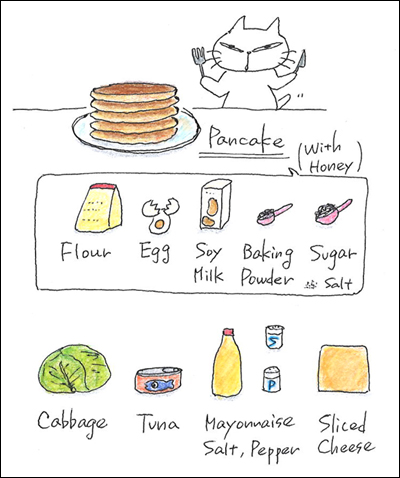 Pancake
(With
Honey)
Flour
Egg
Soy
Milk
Baking
Powder
Sugar
Salt
S
P
Cabbage
Tuna
Mayonnaise
Salt, Pepper
Sliced
Cheese